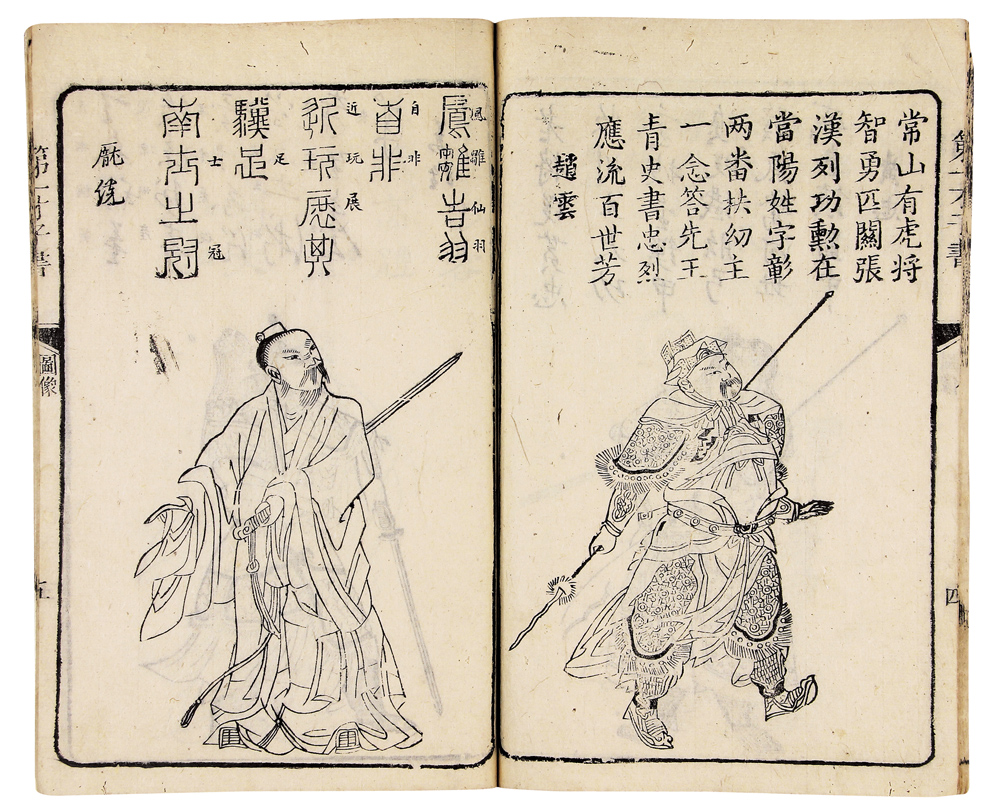 第一才子書
四
常山有虎将
智勇匹關張
漢列功勲在
當陽姓字彰
两番扶幼主
一念答先王
青史書忠烈
應流百世芳
趙雲
鳳雛羽
鳳雛仙羽
自非
自非
近玩展其
近玩展
驥足
足
南士之冠
士冠
龎統
第一才子書
圖像
五